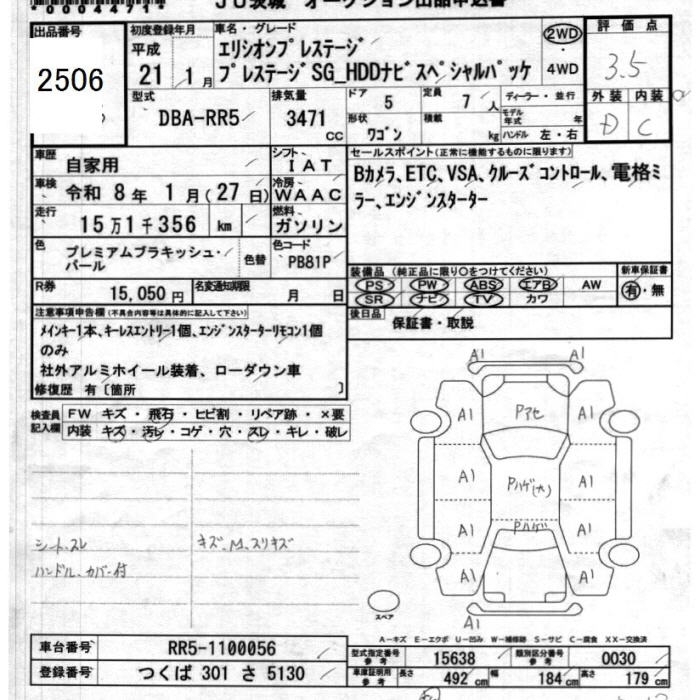 *00044771*
JU茨城 オークション出品申込書
出品番号
2506
初度登録年月
平成
21 1月
車名・グレード
エリシオンプレステージ
プレステージSG_HDDナビスペシャルパッケ
2WD
・
4WD
評価点
3.5
外装 内装
D C
型式
DBA-RR5
排気量
3471
CC
ドア
5
定員
7人
形状
ワゴン
積載
kg
ディーラー・並行
モデル年式 年
ハンドル 左・右
車歴
自家用
シフト
IAT
車検
令和 8年 1月(27日)
冷房
WAAC
走行
15万1千356 km
燃料
ガソリン
色
プレミアムブラキッシュ・
パール
色替
色コード
PB81P
R券
15,050円
名変通知期限
月 日
セールスポイント(正常に機能するものに限ります)
Bカメラ、ETC、VSA、クルーズコントロール、電格ミ
ラー、エンジンスターター
装備品(純正品に限り○をつけてください)
PS PW ABS エアB AW
SR ナビ TV カワ
新車保証書
有・無
後日品
保証書・取説
注意事項申告欄(不具合内容等は具体的に記入して下さい)
メインキー1本、キーレスエントリー1個、エンジンスターターリモコン1個
のみ
社外アルミホイール装着、ローダウン車
修復歴 有〔箇所 〕
検査員
記入欄
FW キズ・飛石・ヒビ割・リペア跡・×要
内装 キズ・汚レ・コゲ・穴・スレ・キレ・破レ
シートスレ
ハンドルカバー付
キズ、M、スリキズ
A1 A1
A1 Pアセ A1
A1 Pハゲ(大) A1
A1 Pハゲ A1
A1 A1
A1
スペア
A-キズ E-エクボ U-凹み W-補修跡 S-サビ C-腐食 XX-交換済
車台番号
RR5-1100056
登録番号
つくば 301 さ 5130
型式指定番号
参考
15638
類別区分番号
参考
0030
車庫証明用
参考
長さ
492 cm
幅
184 cm
高さ
179 cm